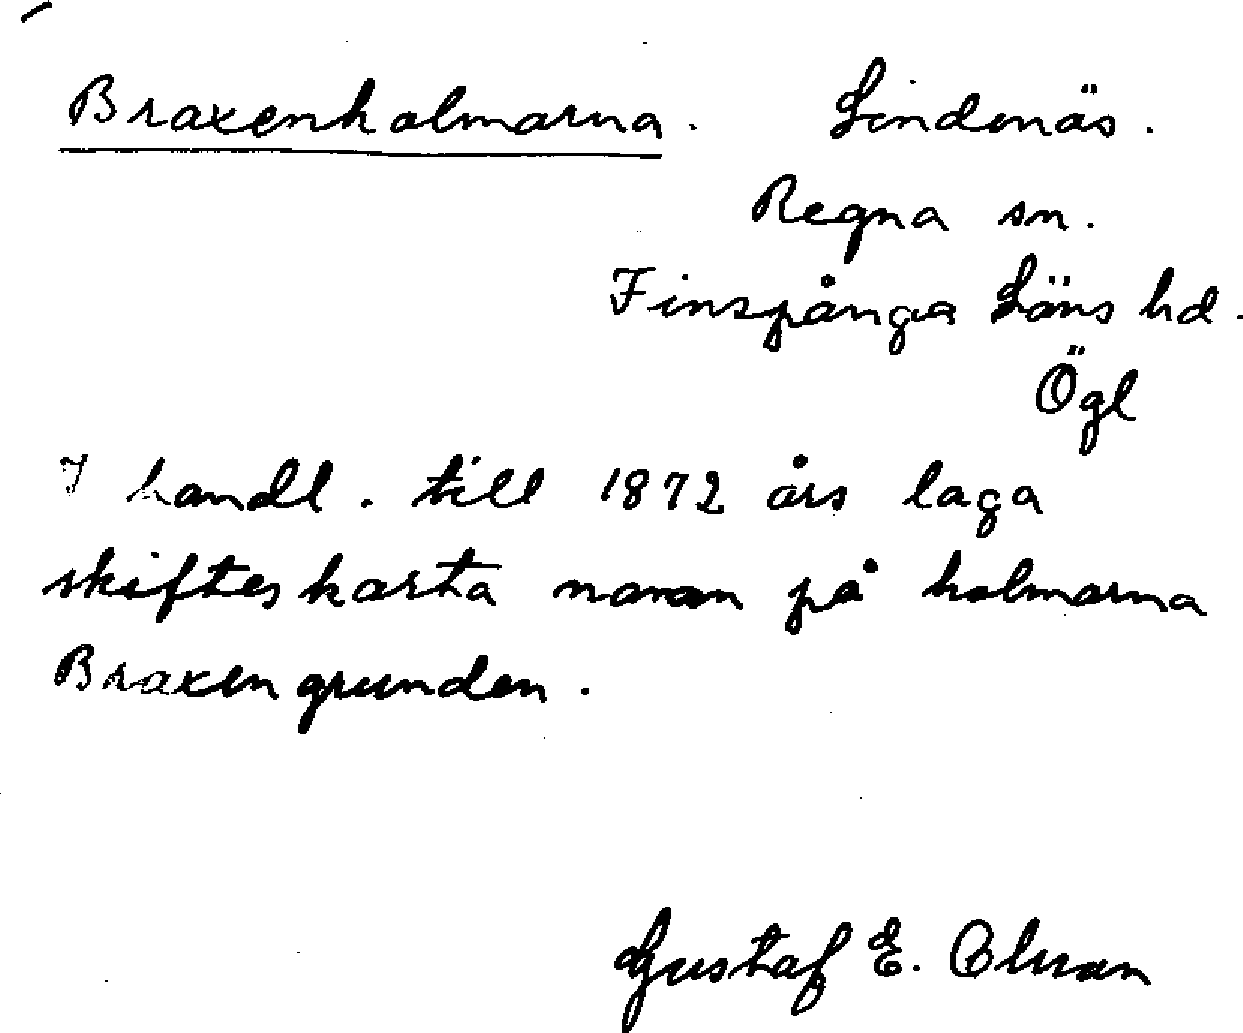 Braxenholmarna. Lindenäs.
Regna sn.
Finspånga Läns hd.
Ögl
I handl. till 1872 års laga
skifteskarta namn på holmarna
Braxengrunden.
Gustaf E.